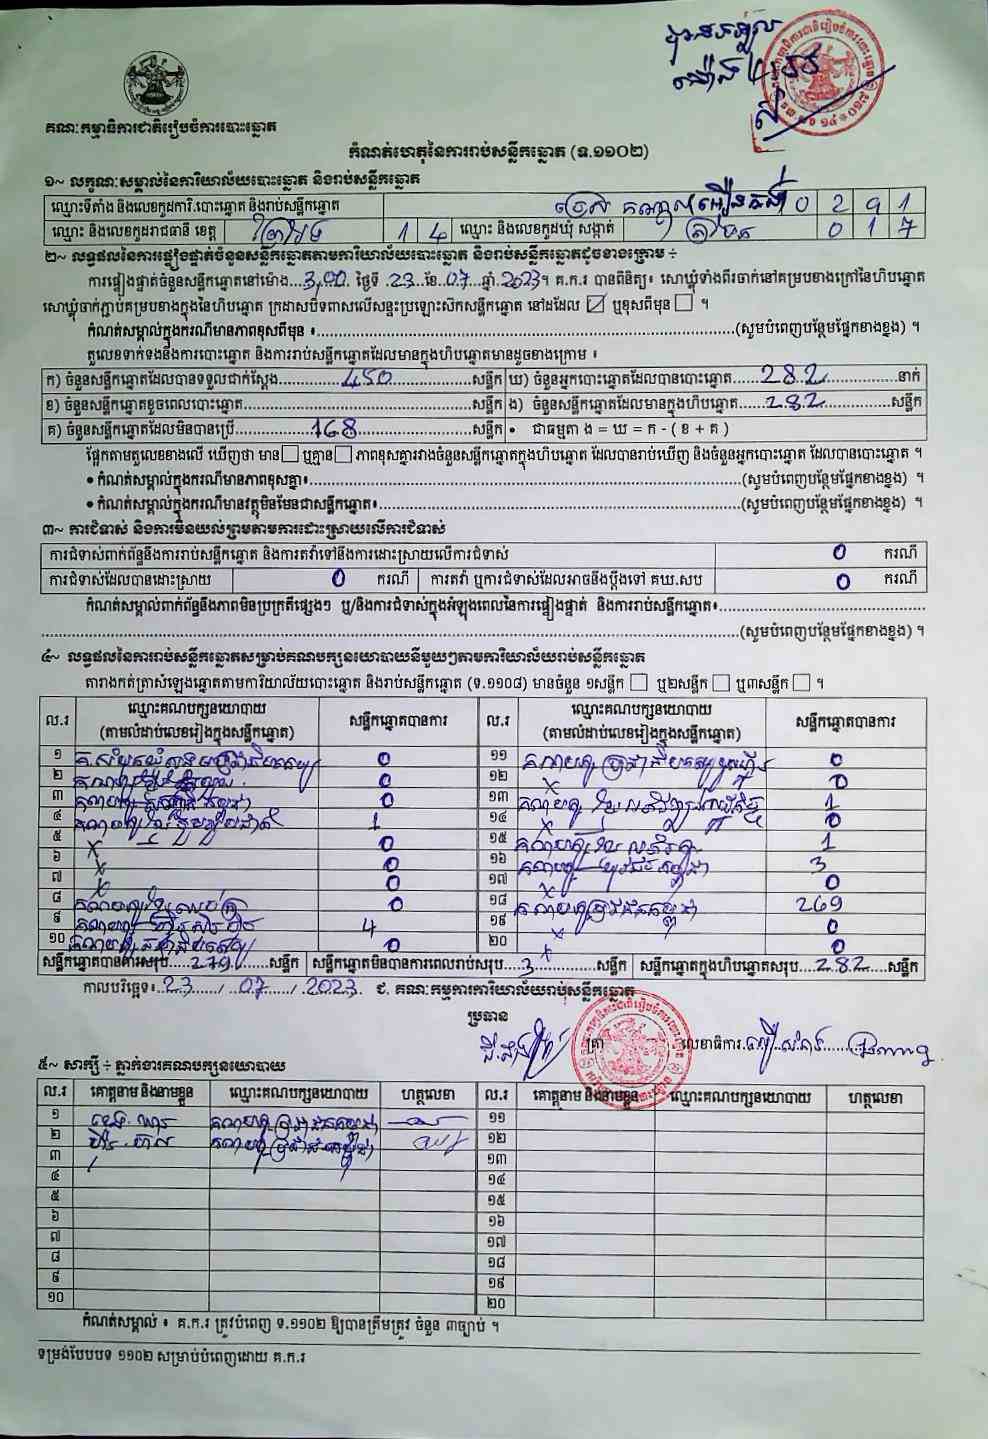 គណៈកម្មាធិការជាតិរៀបចំការបោះឆ្នោត
កំណត់ហេតុនៃការរាប់សន្លឹកឆ្នោត (ទ.១១០២)
១~ លក្ខណៈសម្គាល់នៃការិយាល័យបោះឆ្នោត និងរាប់សន្លឹកឆ្នោត
ឈ្មោះទីតាំង និងលេខកូដការិ.បោះឆ្នោត និងរាប់សន្លឹកឆ្នោត 0 2 9 1
ឈ្មោះ និងលេខកូដរាជធានី ខេត្ត ព្រៃវែង 1 4 ឈ្មោះ និងលេខកូដឃុំ សង្កាត់ 0 1 7
២~ លទ្ធផលនៃការផ្ទៀងផ្ទាត់ចំនួនសន្លឹកឆ្នោតតាមការិយាល័យបោះឆ្នោត និងរាប់សន្លឹកឆ្នោតដូចខាងក្រោម ÷
ការផ្ទៀងផ្ទាត់ចំនួនសន្លឹកឆ្នោតនៅម៉ោង...3,00 ថ្ងៃទី 23 ខែ 07 ឆ្នាំ 2023។ គ.ក.រ បានពិនិត្យ៖ សោឃ្លុំទាំងពីរចាក់នៅគម្របខាងក្រៅនៃហិបឆ្នោត
សោឃ្លុំចាក់ភ្ជាប់គម្របខាងក្នុងនៃហិបឆ្នោត ក្រដាសបិទពាសលើសន្ទះប្រឡោះសិកសន្លឹកឆ្នោត នៅដដែល ☑ ឬខុសពីមុន ☐ ។
កំណត់សម្គាល់ក្នុងករណីមានភាពខុសពីមុន ៖...(សូមបំពេញបន្ថែមផ្នែកខាងខ្នង) ។
តួលេខទាក់ទងនឹងការបោះឆ្នោត និងការរាប់សន្លឹកឆ្នោតដែលមានក្នុងហិបឆ្នោតមានដូចខាងក្រោម ៖
ក) ចំនួនសន្លឹកឆ្នោតដែលបានទទួលជាក់ស្តែង...450...សន្លឹក ឃ) ចំនួនអ្នកបោះឆ្នោតដែលបានបោះឆ្នោត...282...នាក់
ខ) ចំនួនសន្លឹកឆ្នោតខូចពេលបោះឆ្នោត...សន្លឹក ង) ចំនួនសន្លឹកឆ្នោតដែលមានក្នុងហិបឆ្នោត...282...សន្លឹក
គ) ចំនួនសន្លឹកឆ្នោតដែលមិនបានប្រើ...168...សន្លឹក • ជាធម្មតា ង = ឃ = ក - ( ខ + គ )
ផ្អែកតាមតួលេខខាងលើ ឃើញថា មាន ☐ ឬគ្មាន ☐ ភាពខុសគ្នារវាងចំនួនសន្លឹកឆ្នោតក្នុងហិបឆ្នោត ដែលបានរាប់ឃើញ និងចំនួនអ្នកបោះឆ្នោត ដែលបានបោះឆ្នោត ។
• កំណត់សម្គាល់ក្នុងករណីមានភាពខុសគ្នា៖...(សូមបំពេញបន្ថែមផ្នែកខាងខ្នង) ។
• កំណត់សម្គាល់ក្នុងករណីមានវត្ថុមិនមែនជាសន្លឹកឆ្នោត៖...(សូមបំពេញបន្ថែមផ្នែកខាងខ្នង) ។
៣~ ការជំទាស់ និងការមិនយល់ព្រមតាមការដោះស្រាយលើការជំទាស់
ការជំទាស់ពាក់ព័ន្ធនឹងការរាប់សន្លឹកឆ្នោត និងការតវ៉ាទៅនឹងការដោះស្រាយលើការជំទាស់ 0 ករណី
ការជំទាស់ដែលបានដោះស្រាយ 0 ករណី ការតវ៉ា ឬការជំទាស់ដែលអាចនឹងប្តឹងទៅ គឃ.សប 0 ករណី
កំណត់សម្គាល់ពាក់ព័ន្ធនឹងភាពមិនប្រក្រតីផ្សេងៗ ឬ/និងការជំទាស់ក្នុងអំឡុងពេលនៃការផ្ទៀងផ្ទាត់ និងការរាប់សន្លឹកឆ្នោត៖...
...(សូមបំពេញបន្ថែមផ្នែកខាងខ្នង) ។
៤~ លទ្ធផលនៃការរាប់សន្លឹកឆ្នោតសម្រាប់គណបក្សនយោបាយនីមួយៗតាមការិយាល័យរាប់សន្លឹកឆ្នោត
តារាងកត់ត្រាសំឡេងឆ្នោតតាមការិយាល័យបោះឆ្នោត និងរាប់សន្លឹកឆ្នោត (ទ.១១០៨) មានចំនួន ១សន្លឹក ☐ ឬ២សន្លឹក ☐ ឬ៣សន្លឹក ☐ ។
ល.រ ឈ្មោះគណបក្សនយោបាយ (តាមលំដាប់លេខរៀងក្នុងសន្លឹកឆ្នោត) សន្លឹកឆ្នោតបានការ ល.រ ឈ្មោះគណបក្សនយោបាយ (តាមលំដាប់លេខរៀងក្នុងសន្លឹកឆ្នោត) សន្លឹកឆ្នោតបានការ
១ 0 ១១ 0
២ 0 ១២ x 0
៣ 0 ១៣ 1
៤ 1 ១៤ x 0
៥ x 0 ១៥ 1
៦ x 0 ១៦ 3
៧ x 0 ១៧ x 0
៨ 0 ១៨ គណបក្សប្រជាជនកម្ពុជា 269
៩ 4 ១៩ x 0
១០ 0 ២០ x 0
សន្លឹកឆ្នោតបានការសរុប...279...សន្លឹក សន្លឹកឆ្នោតមិនបានការពេលរាប់សរុប...3...សន្លឹក សន្លឹកឆ្នោតក្នុងហិបឆ្នោតសរុប...282...សន្លឹក
កាលបរិច្ឆេទ៖ 23 / 07 / 2023 ជ. គណៈកម្មការការិយាល័យរាប់សន្លឹកឆ្នោត
ប្រធាន
ត្រា លេខាធិការ
៥~ សាក្សី ÷ ភ្នាក់ងារគណបក្សនយោបាយ
ល.រ គោត្តនាម និងនាមខ្លួន ឈ្មោះគណបក្សនយោបាយ ហត្ថលេខា ល.រ គោត្តនាម និងនាមខ្លួន ឈ្មោះគណបក្សនយោបាយ ហត្ថលេខា
១ គណបក្សប្រជាជនកម្ពុជា ១១
២ គណបក្សប្រជាជនកម្ពុជា ១២
៣ ១៣
៤ ១៤
៥ ១៥
៦ ១៦
៧ ១៧
៨ ១៨
៩ ១៩
១០ ២០
កំណត់សម្គាល់ ៖ គ.ក.រ ត្រូវបំពេញ ទ.១១០២ ឱ្យបានត្រឹមត្រូវ ចំនួន ៣ច្បាប់ ។
ទម្រង់បែបបទ ១១០២ សម្រាប់បំពេញដោយ គ.ក.រ